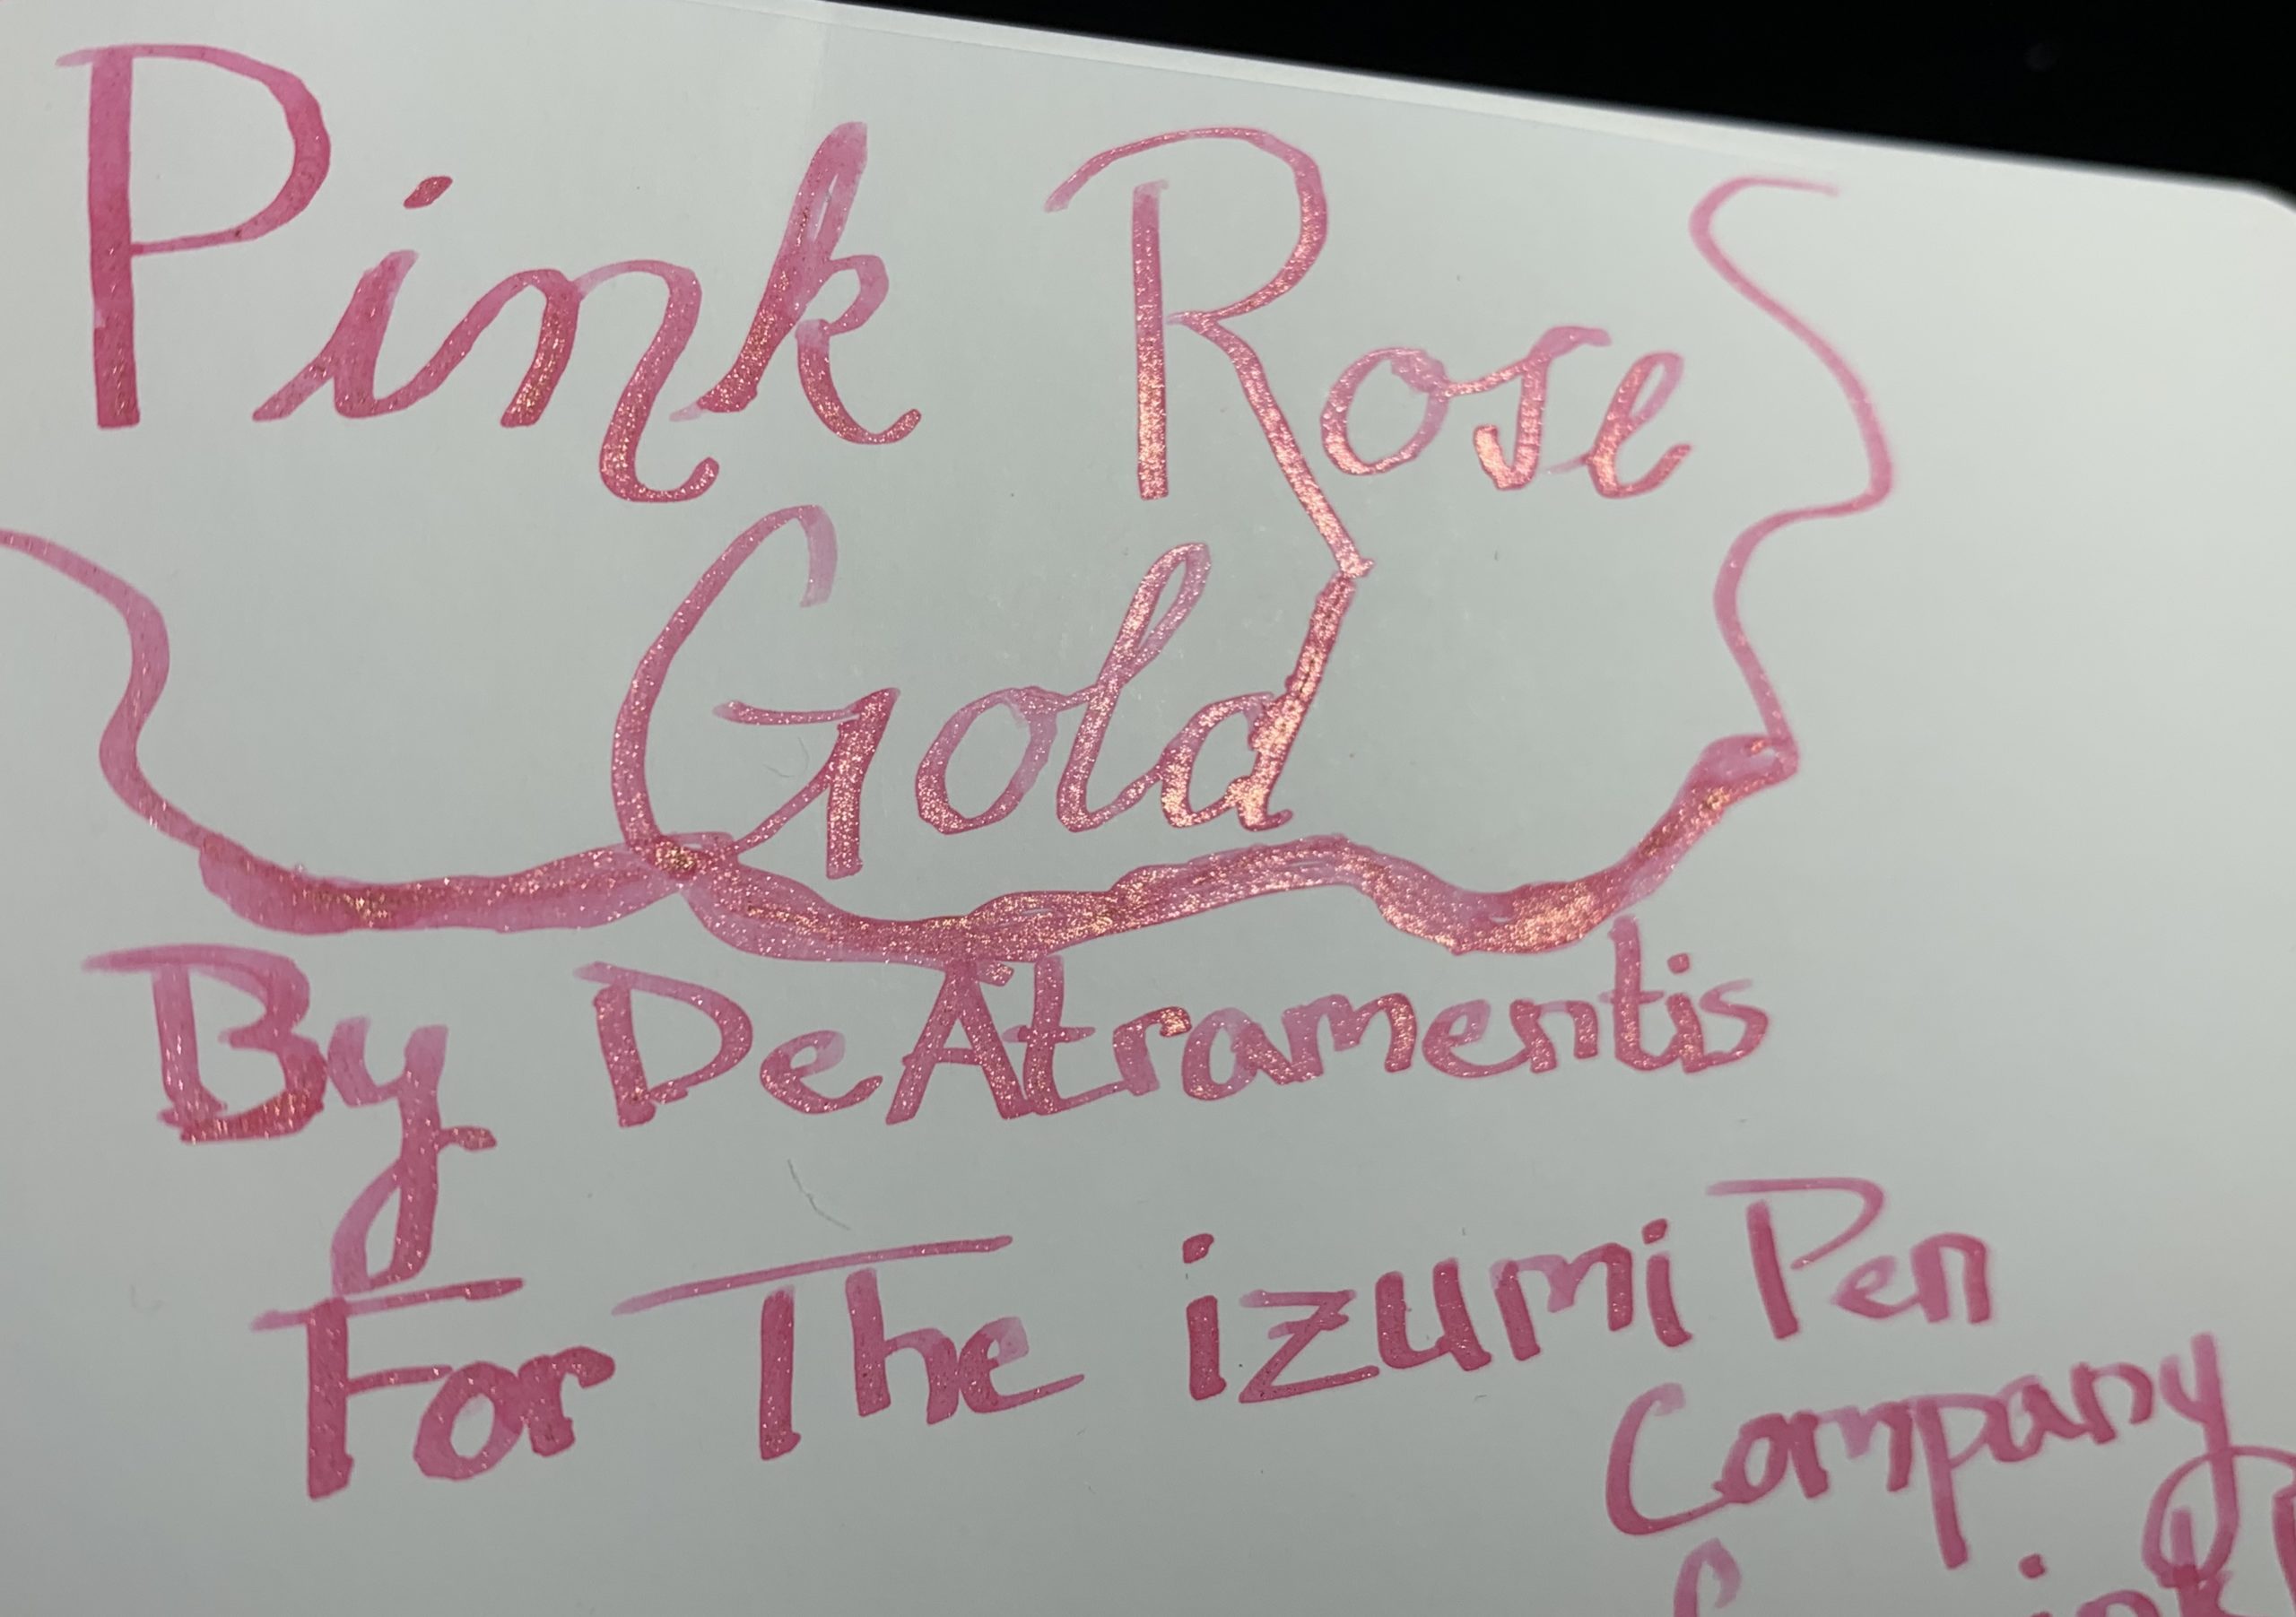 Pink Rose
Gold
By DeAtramentis
For The izumi Pen
Company